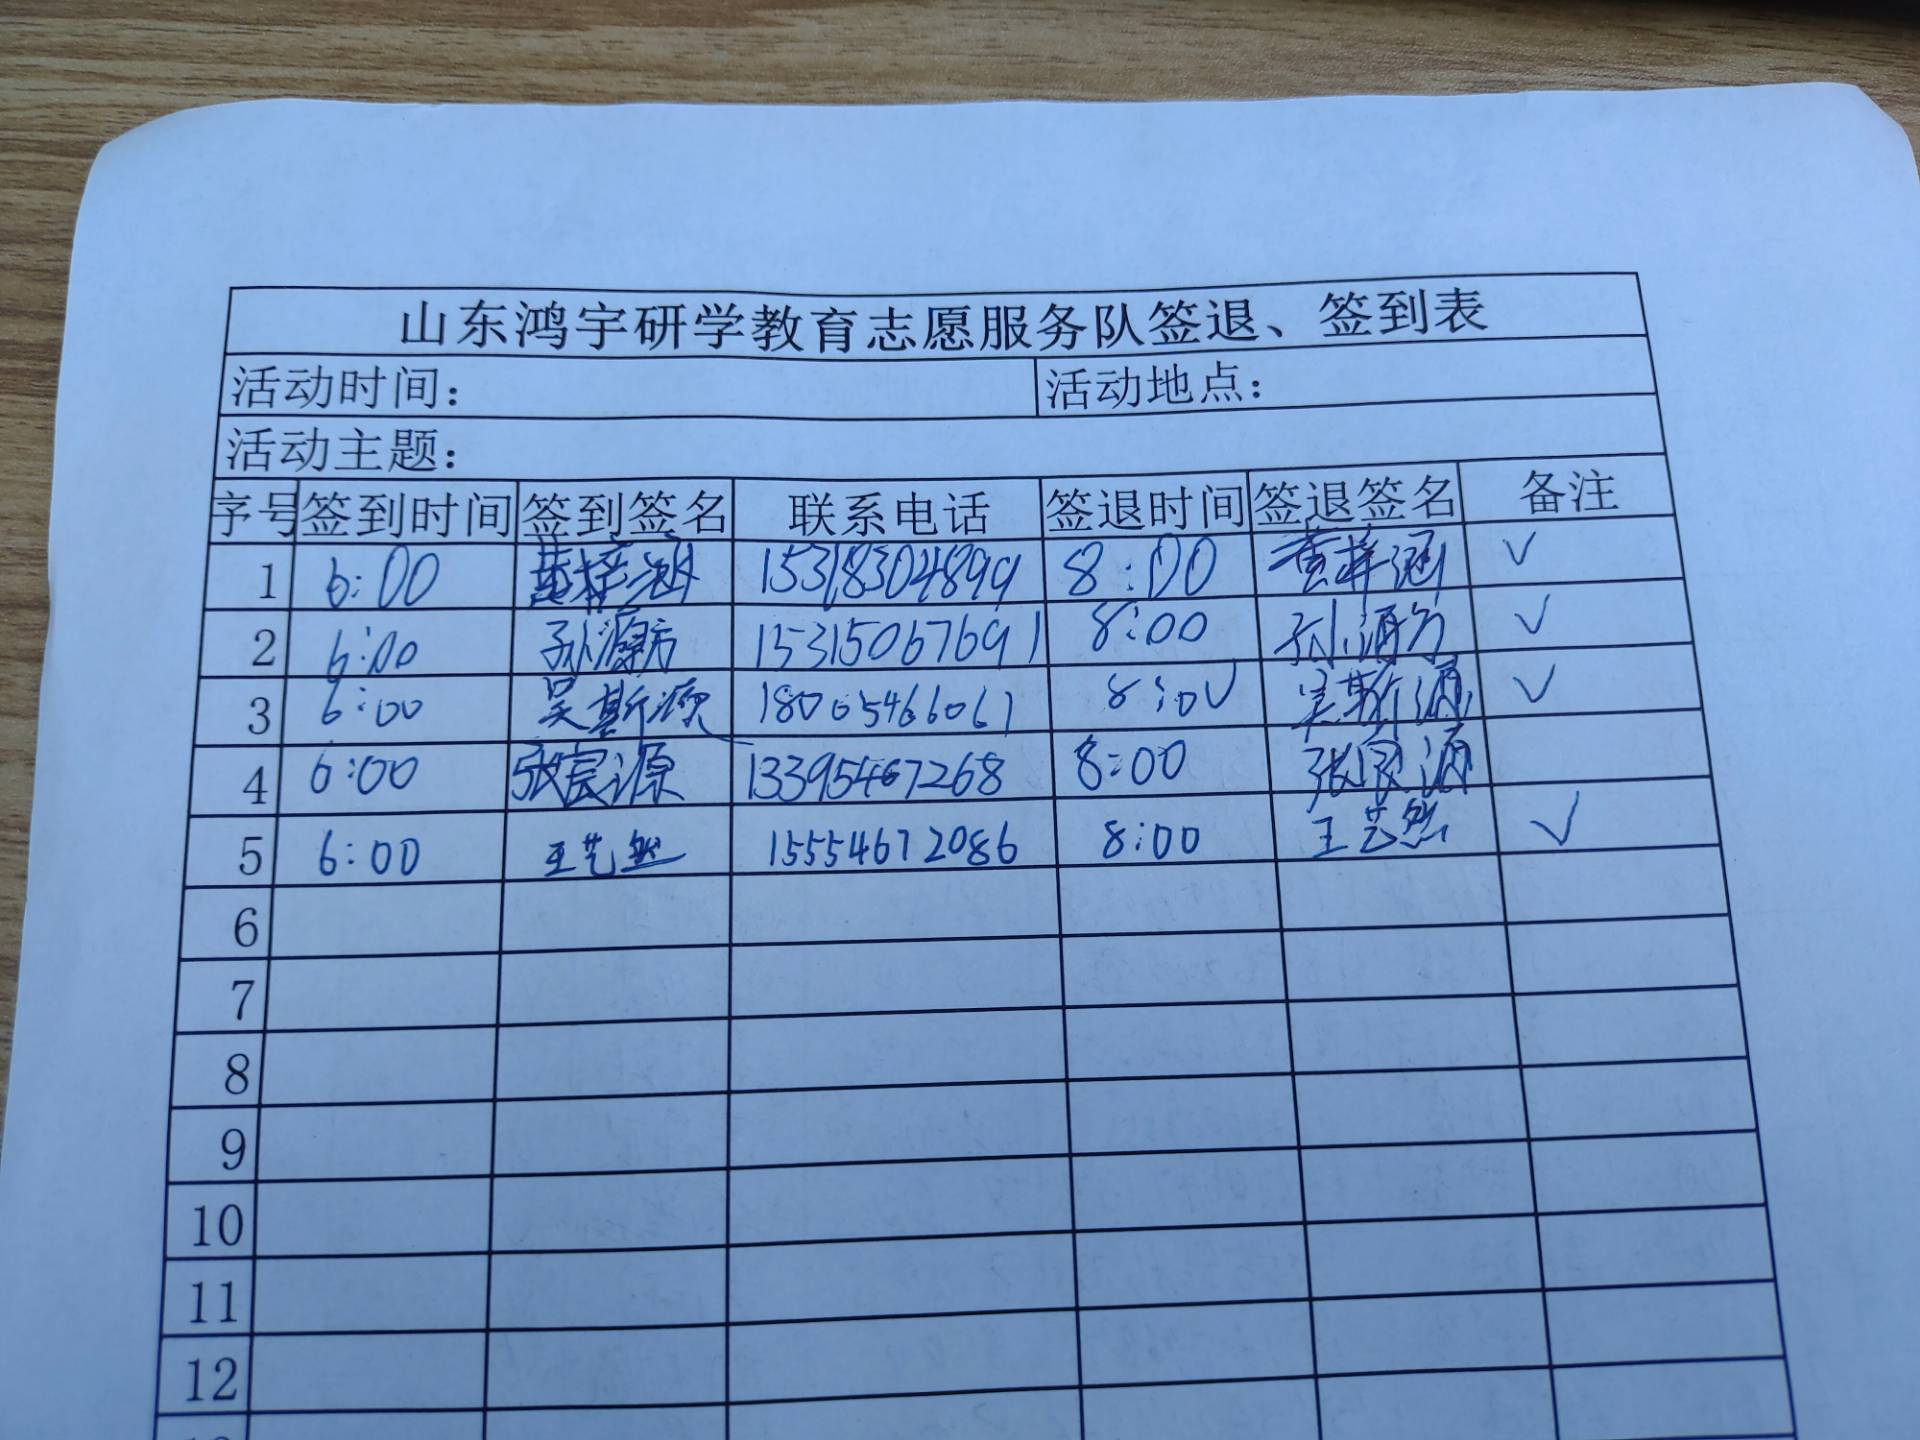 山东鸿宇研学教育志愿服务队签退、签到表
活动时间： 活动地点：
活动主题：
序号 签到时间 签到签名 联系电话 签退时间 签退签名 备注
1 6:00 黄梓涵 15318304899 8:00 黄梓涵 √
2 6:00 孙源方 15315067691 8:00 √
3 6:00 吴斯源 18005466061 8:00 吴斯源 √
4 6:00 张宸源 13395467268 8:00
5 6:00 王艺然 15554672086 8:00 王艺然 √
6
7
8
9
10
11
12